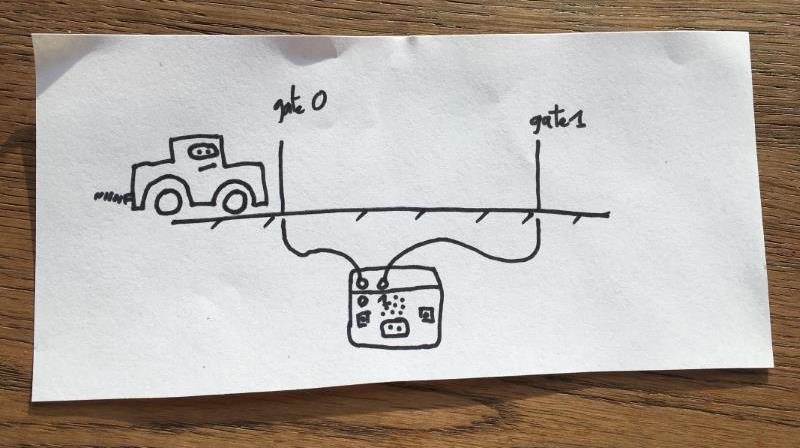 gate 0
gate 1
0 1